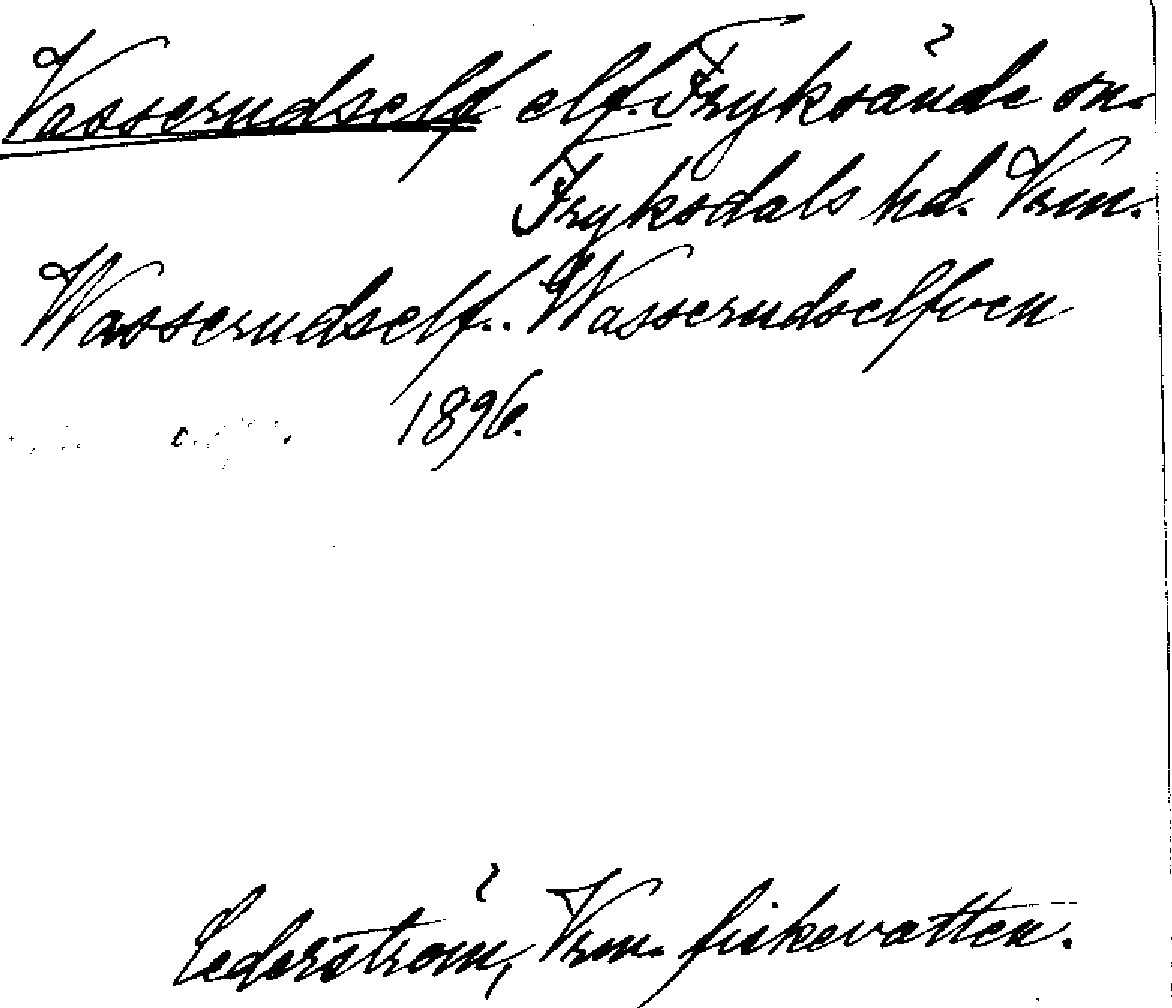 Vasserudself elf. Fryksände sn.
Fryksdals hd. Vrm.
Wasserudself. Wasserudselfven
1896.
Cederström, Vrm. fiskevatten.